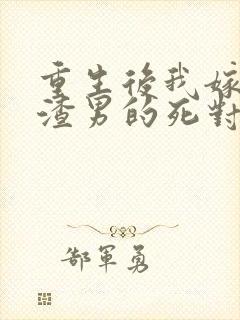 重生後我嫁
渣男的死對
郜軍勇